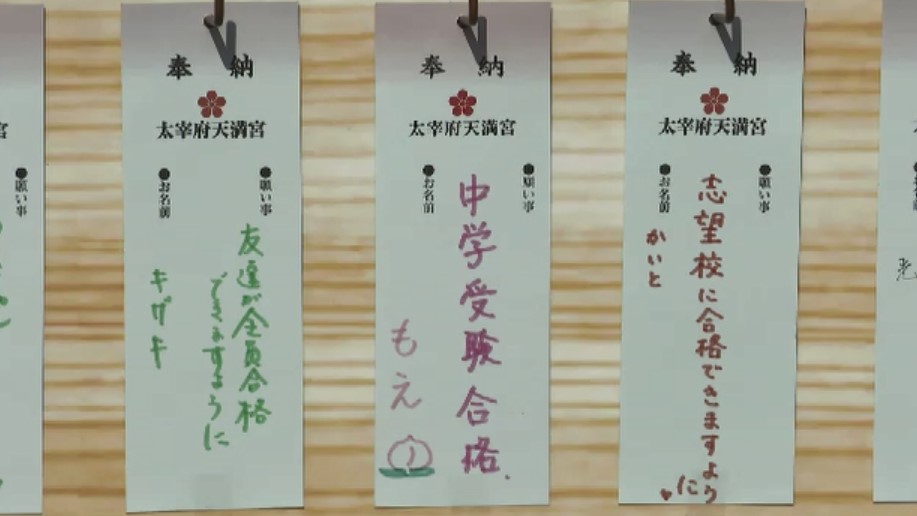 奉 納
太宰府天満宮
●願い事
●お名前
友達が全員合格
できますように
キザキ
奉 納
太宰府天満宮
●願い事
●お名前
中学受験合格.
もえ
奉 納
太宰府天満宮
●願い事
●お名前
志望校に合格できますよう
に♥
かいと
宮
●願い事